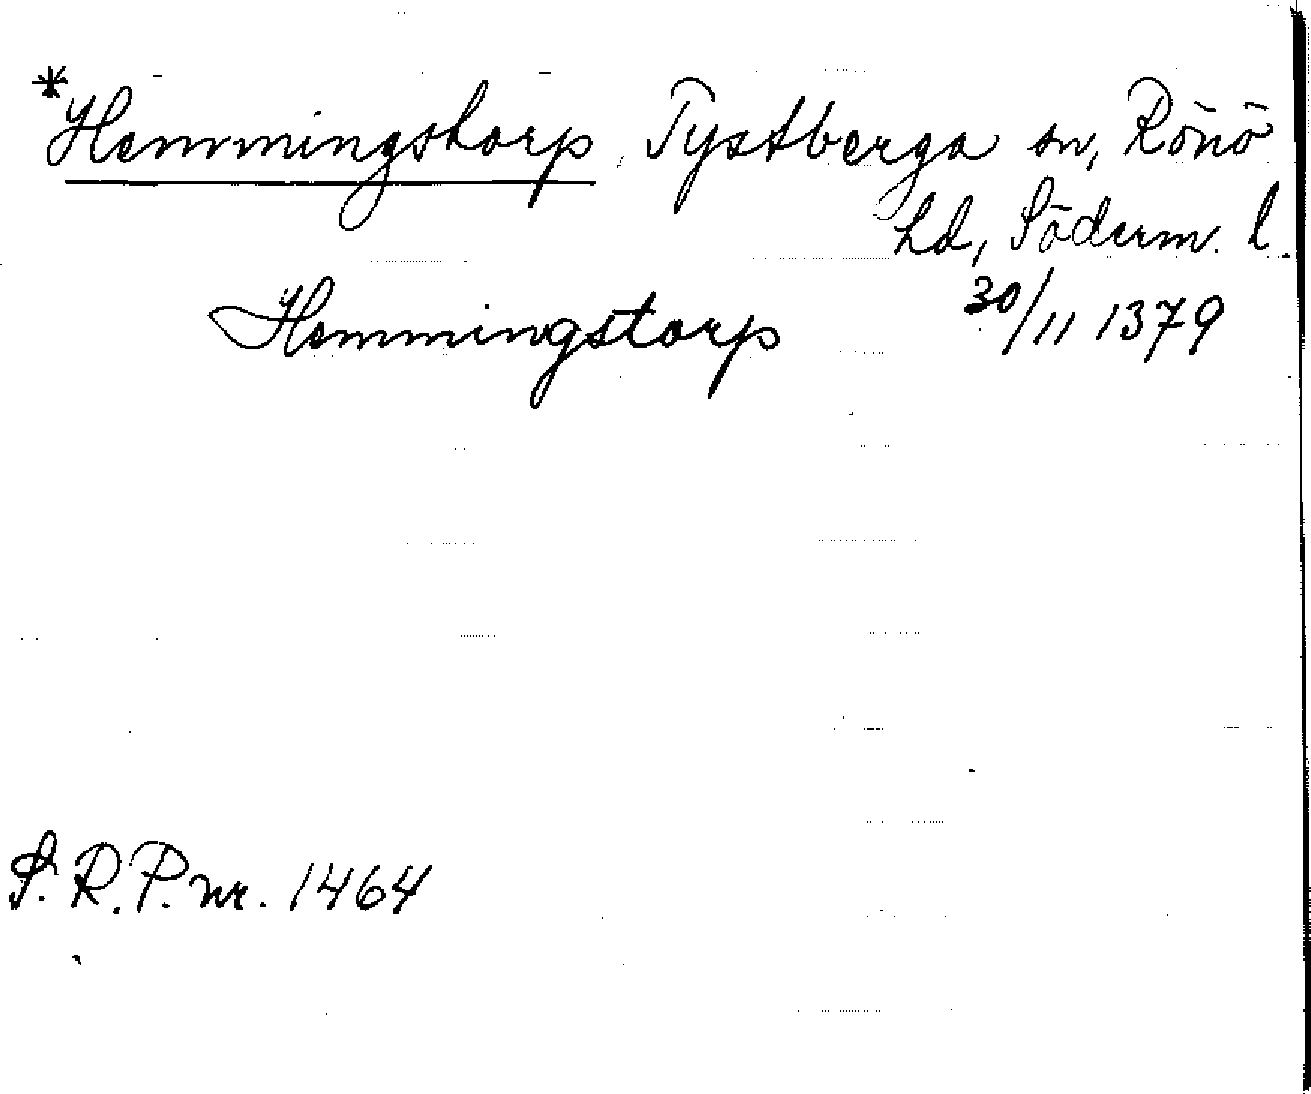 *Hemmingstorp, Tystberga sn, Rönö
hd, Söderm. l.
Hemmingstorp 30/11 1379
S.R.P. nr. 1464